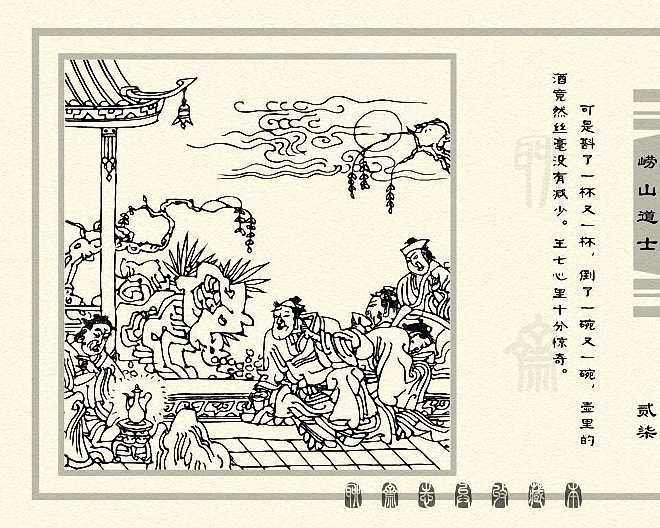 崂山道士
贰柒
可是斟了一杯又一杯，倒了一碗又一碗，壶里的
酒竟然丝毫没有减少。王七心里十分惊奇。